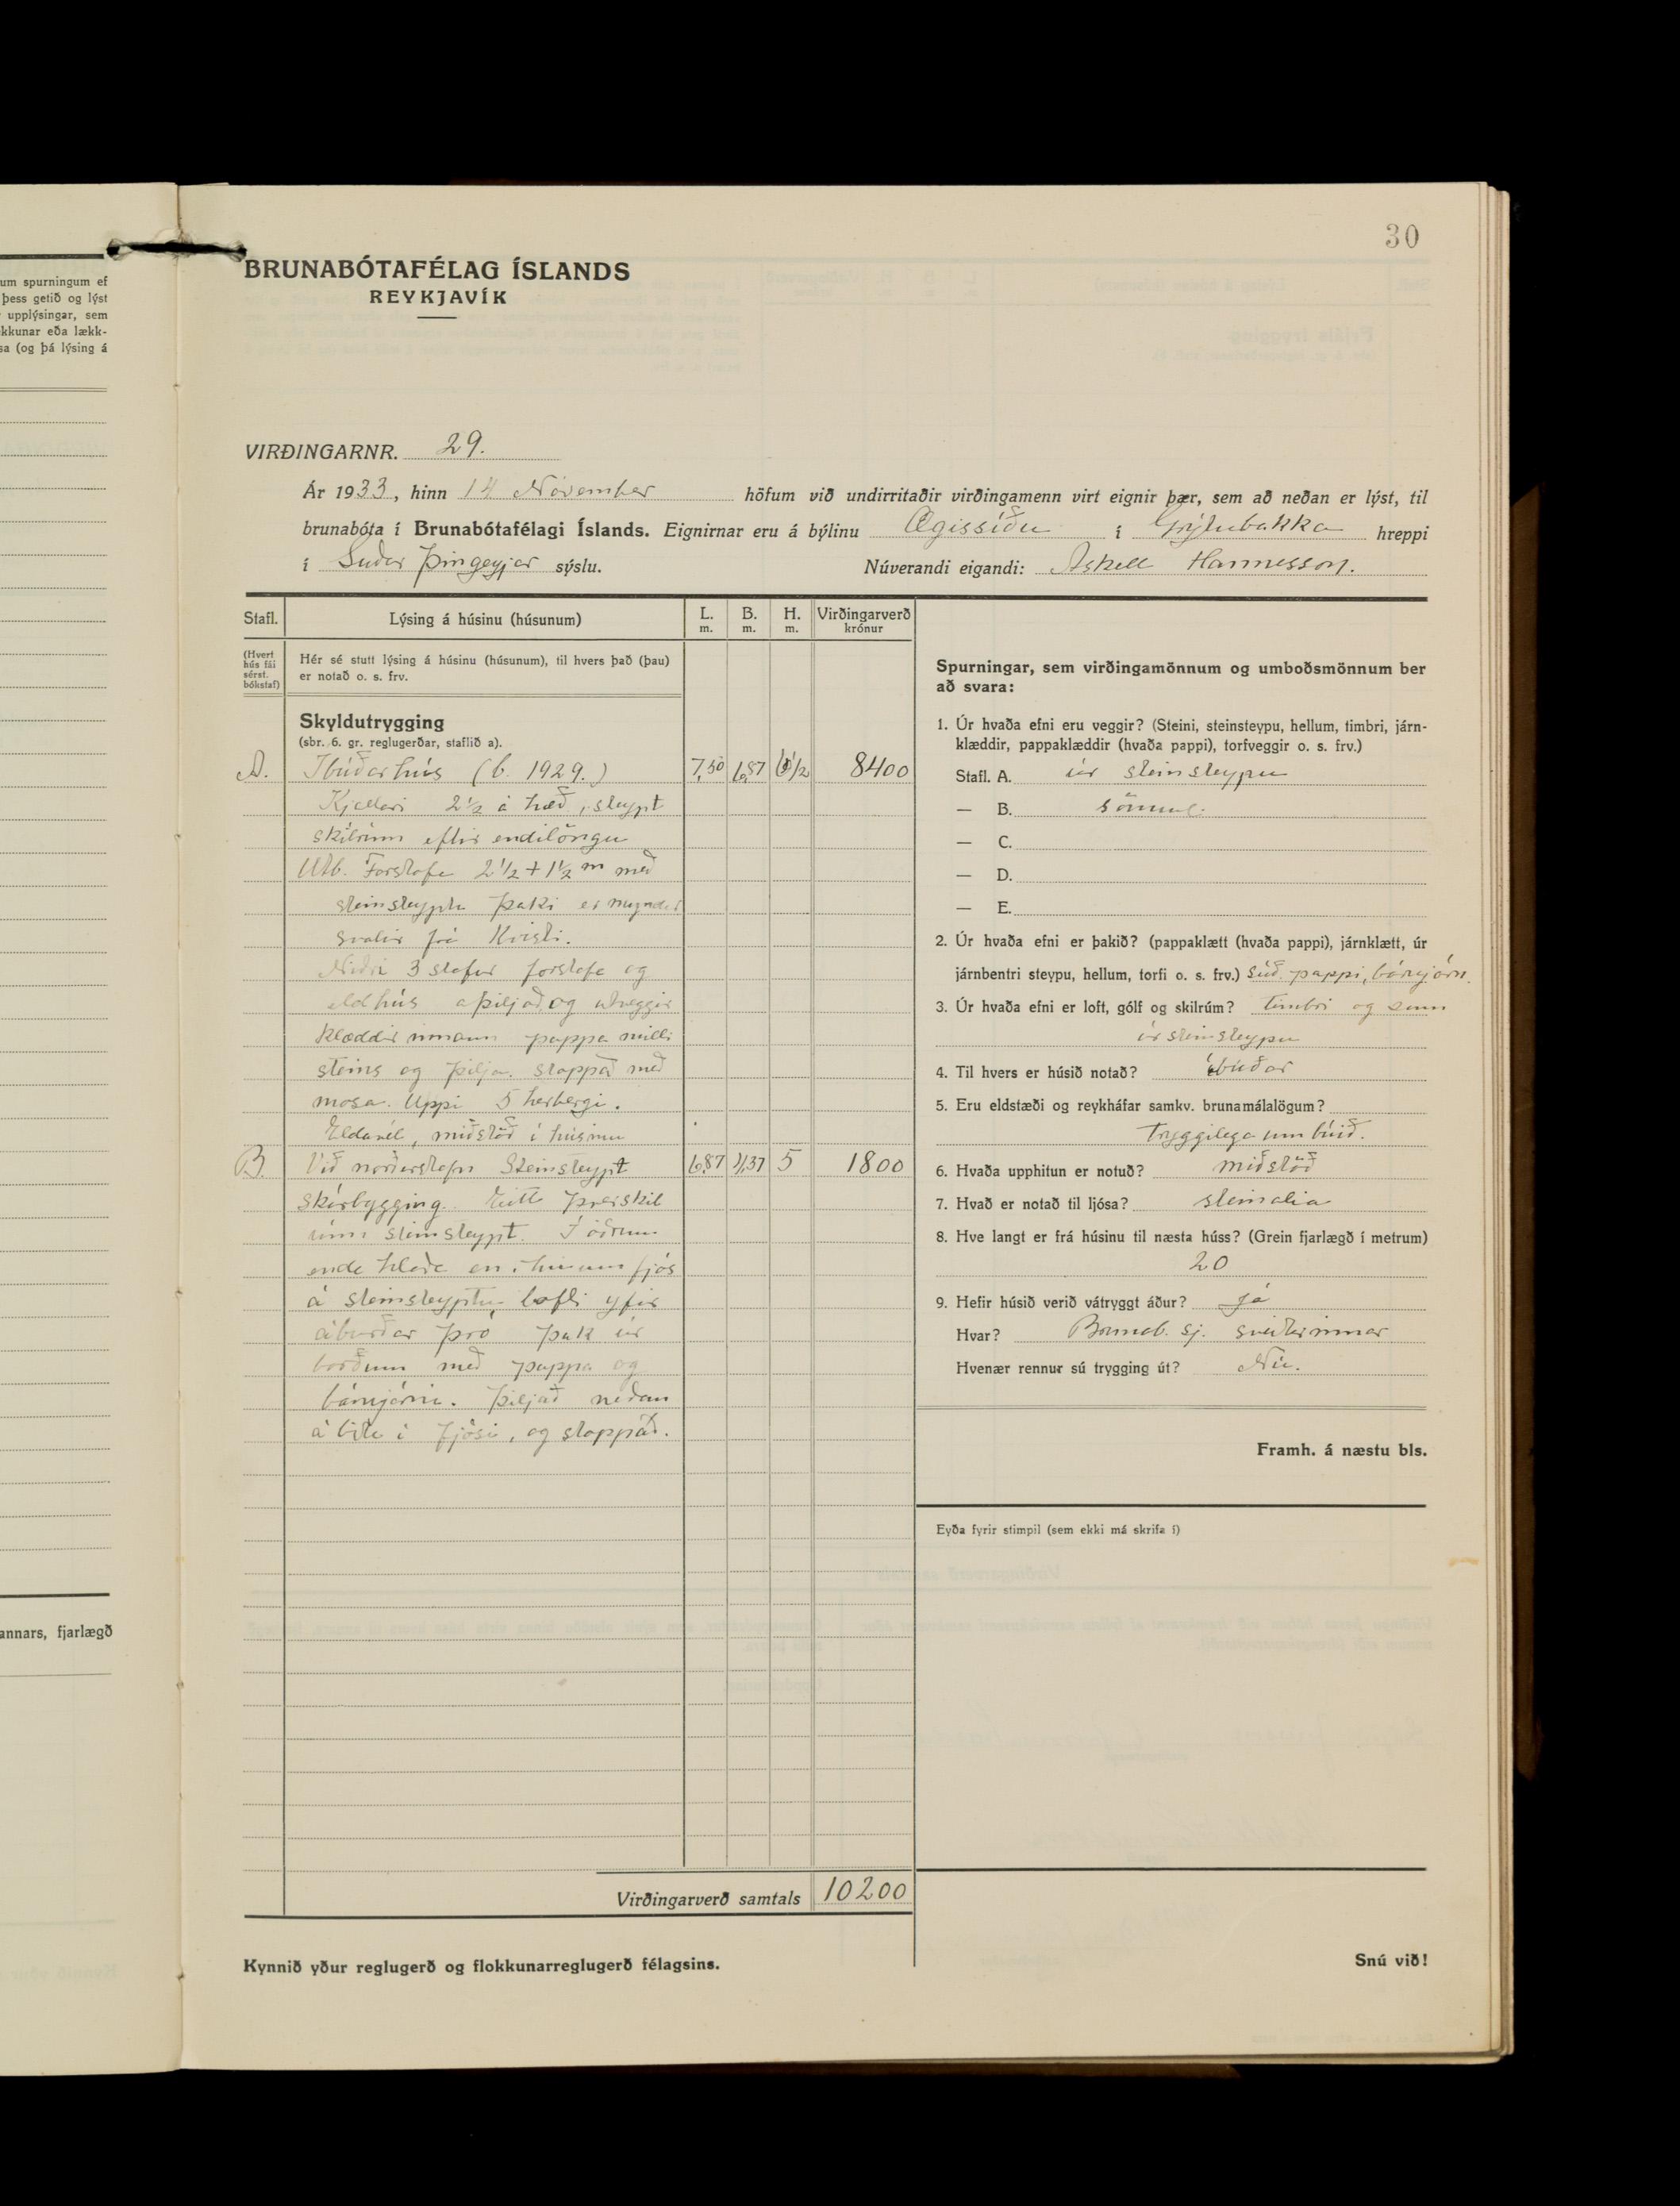 um spurningum ef
þess getið og lýst
r upplýsingar, sem
kkunar eða lækk-
sa (og þá lýsing á
annars, fjarlægð
30
BRUNABÓTAFÉLAG ÍSLANDS
REYKJAVÍK
VIRÐINGARNR. 29.
Ár 1933, hinn 14 Nóvember höfum við undirritaðir virðingamenn virt eignir þær, sem að neðan er lýst, til
brunabóta í Brunabótafélagi Íslands. Eignirnar eru á býlinu Ægissíðu í Grýtubakka hreppi
í Suður Þingeyjar sýslu. Núverandi eigandi: Áskell Hannesson.
Stafl. Lýsing á húsinu (húsunum) L. m. B. m. H. m. Virðingarverð krónur
(Hvert hús fái sérst. bókstaf)
Hér sé stutt lýsing á húsinu (húsunum), til hvers það (þau)
er notað o. s. frv.
Skyldutrygging
(sbr. 6. gr. reglugerðar, staflið a).
A. Íbúðarhús (b. 1929.) 7,50 6,87 6 1/2 8400
Kjallari 2 1/2 á hæð, steypt
skilrúm eftir endilöngu
Utb. Forstofa 2 1/2 + 1 1/2 m með
steinsteyptu þaki er myndar
svalir frá Kvisti.
Niðri 3 stofur forstofa og
eldhús aþiljað og utveggir
klæddir innann pappa milli
steins og þilja. stoppað með
mosa. Uppi 5 herbergi.
Eldavél, miðstöð í húsinu
B. Við norðurstafn Steinsteypt 6,87 11,37 5 1800
skúrbygging. Eitt þverskil
rúm steinsteypt. Í öðrum
enda hlaða en í hinum fjós
á steinsteyptu lofti yfir
áburðar þró þak úr
borðum með pappa og
bárujárni. Þiljað neðan
á bita í fjósi, og stoppað.
Virðingarverð samtals 10200
Kynnið yður reglugerð og flokkunarreglugerð félagsins.
Spurningar, sem virðingamönnum og umboðsmönnum ber
að svara:
1. Úr hvaða efni eru veggir? (Steini, steinsteypu, hellum, timbri, járn-
klæddir, pappaklæddir (hvaða pappi), torfveggir o. s. frv.)
Stafl. A. úr steinsteypu
— B. sömul.
— C.
— D.
— E.
2. Úr hvaða efni er þakið? (pappaklætt (hvaða pappi), járnklætt, úr
járnbentri steypu, hellum, torfi o. s. frv.) súð. pappi, bárujárn.
3. Úr hvaða efni er loft, gólf og skilrúm? timbri og sum
úr steinsteypu
4. Til hvers er húsið notað? íbúðar
5. Eru eldstæði og reykháfar samkv. brunamálalögum?
Tryggilega um búið.
6. Hvaða upphitun er notuð? miðstöð
7. Hvað er notað til ljósa? steinolia
8. Hve langt er frá húsinu til næsta húss? (Grein fjarlægð í metrum)
20
9. Hefir húsið verið vátryggt áður? já
Hvar? Brunab. sj. sveitarinnar
Hvenær rennur sú trygging út? Nú.
Framh. á næstu bls.
Eyða fyrir stimpil (sem ekki má skrifa í)
Snú við!